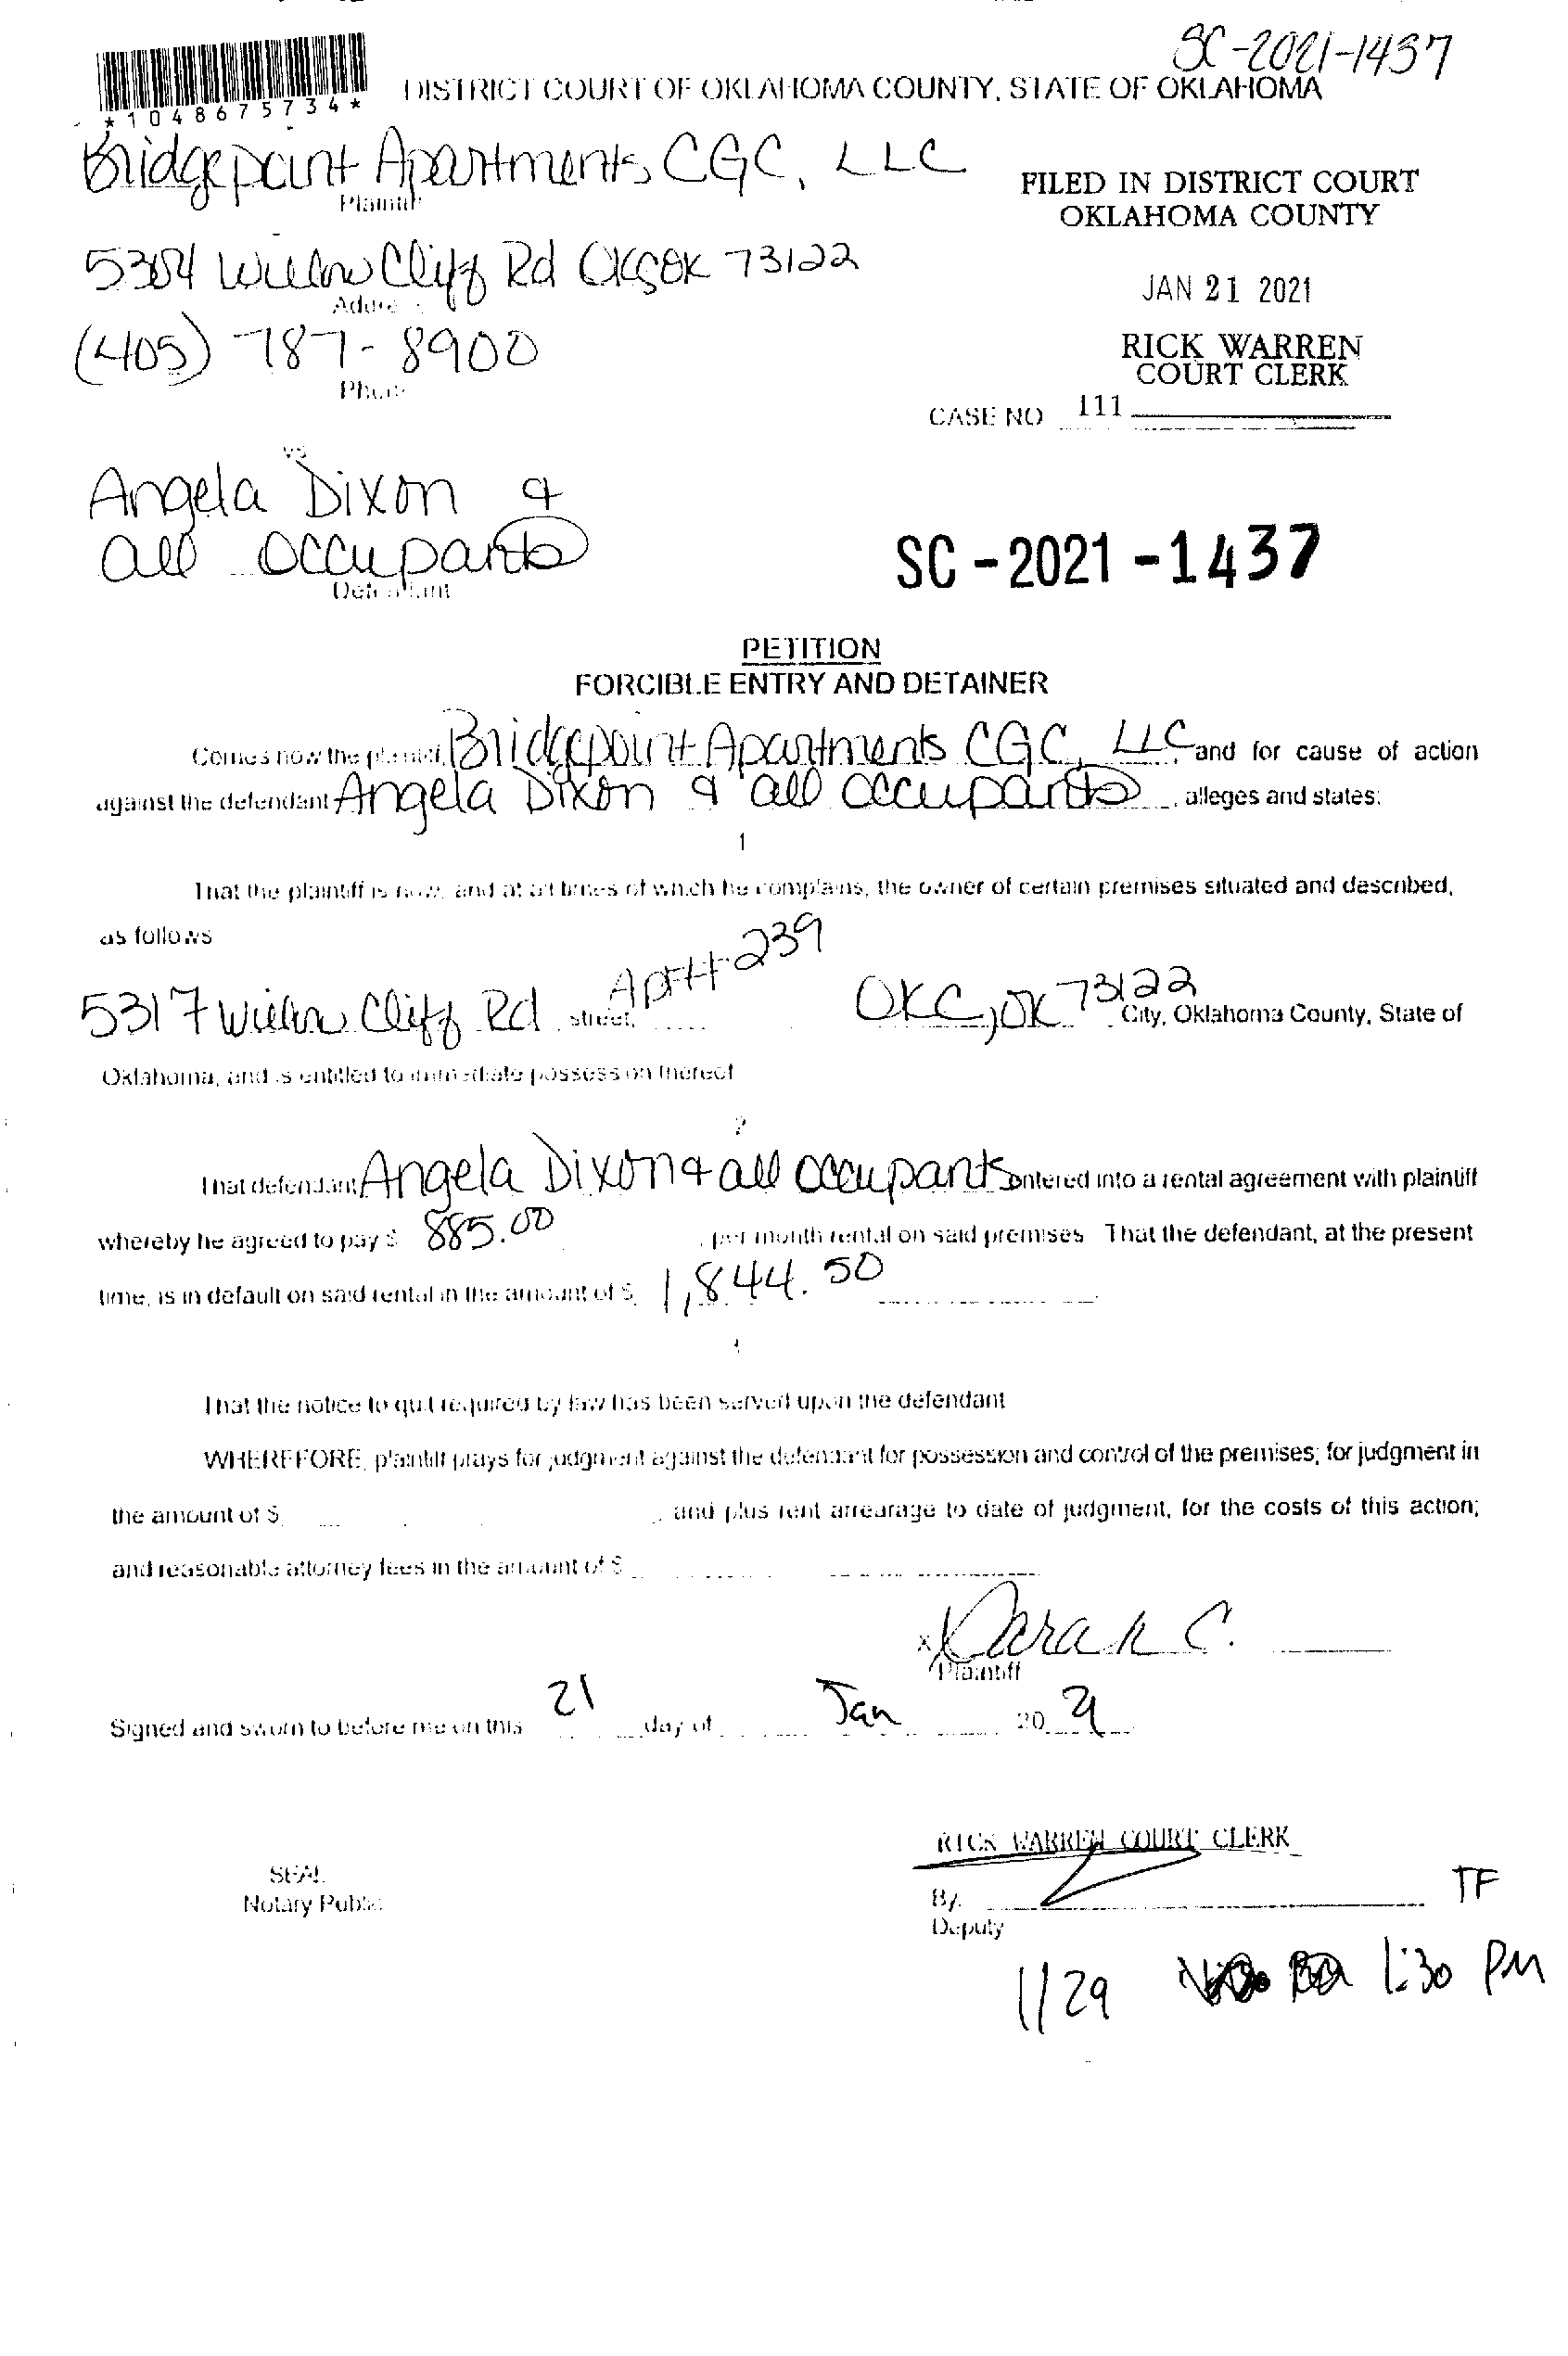 SC-2021-1437
*1048675734*
DISTRICT COURT OF OKLAHOMA COUNTY, STATE OF OKLAHOMA
Bridgepoint Apartments CGC, LLC
Plaintiff
FILED IN DISTRICT COURT
OKLAHOMA COUNTY
5304 Willow Cliff Rd OKC OK 73122
Address
JAN 21 2021
(405) 787-8900
Phone
RICK WARREN
COURT CLERK
CASE NO 111
vs
Angela Dixon &
all occupants
Defendant
SC-2021-1437
PETITION
FORCIBLE ENTRY AND DETAINER
Comes now the plaintiff, Bridgepoint Apartments CGC, LLC, and for cause of action
against the defendant Angela Dixon & all occupants, alleges and states:
1
That the plaintiff is now, and at all times of which he complains, the owner of certain premises situated and described,
as follows
5317 Willow Cliff Rd street, Apt# 239 OKC, OK 73122 City, Oklahoma County, State of
Oklahoma, and is entitled to immediate possession thereof
2
That defendant Angela Dixon & all occupants entered into a rental agreement with plaintiff
whereby he agreed to pay $ 885.00, per month rental on said premises That the defendant, at the present
time, is in default on said rental in the amount of $ 1,844.50
That the notice to quit required by law has been served upon the defendant
WHEREFORE, plaintiff prays for judgment against the defendant for possession and control of the premises; for judgment in
the amount of $ , and plus rent arrearage to date of judgment, for the costs of this action;
and reasonable attorney fees in the amount of $
x Sarah C.
Plaintiff
Signed and sworn to before me on this 21 day of Jan 20 21
RICK WARREN COURT CLERK
SEAL
Notary Public
By. TF
Deputy
1/29 1:30 PM